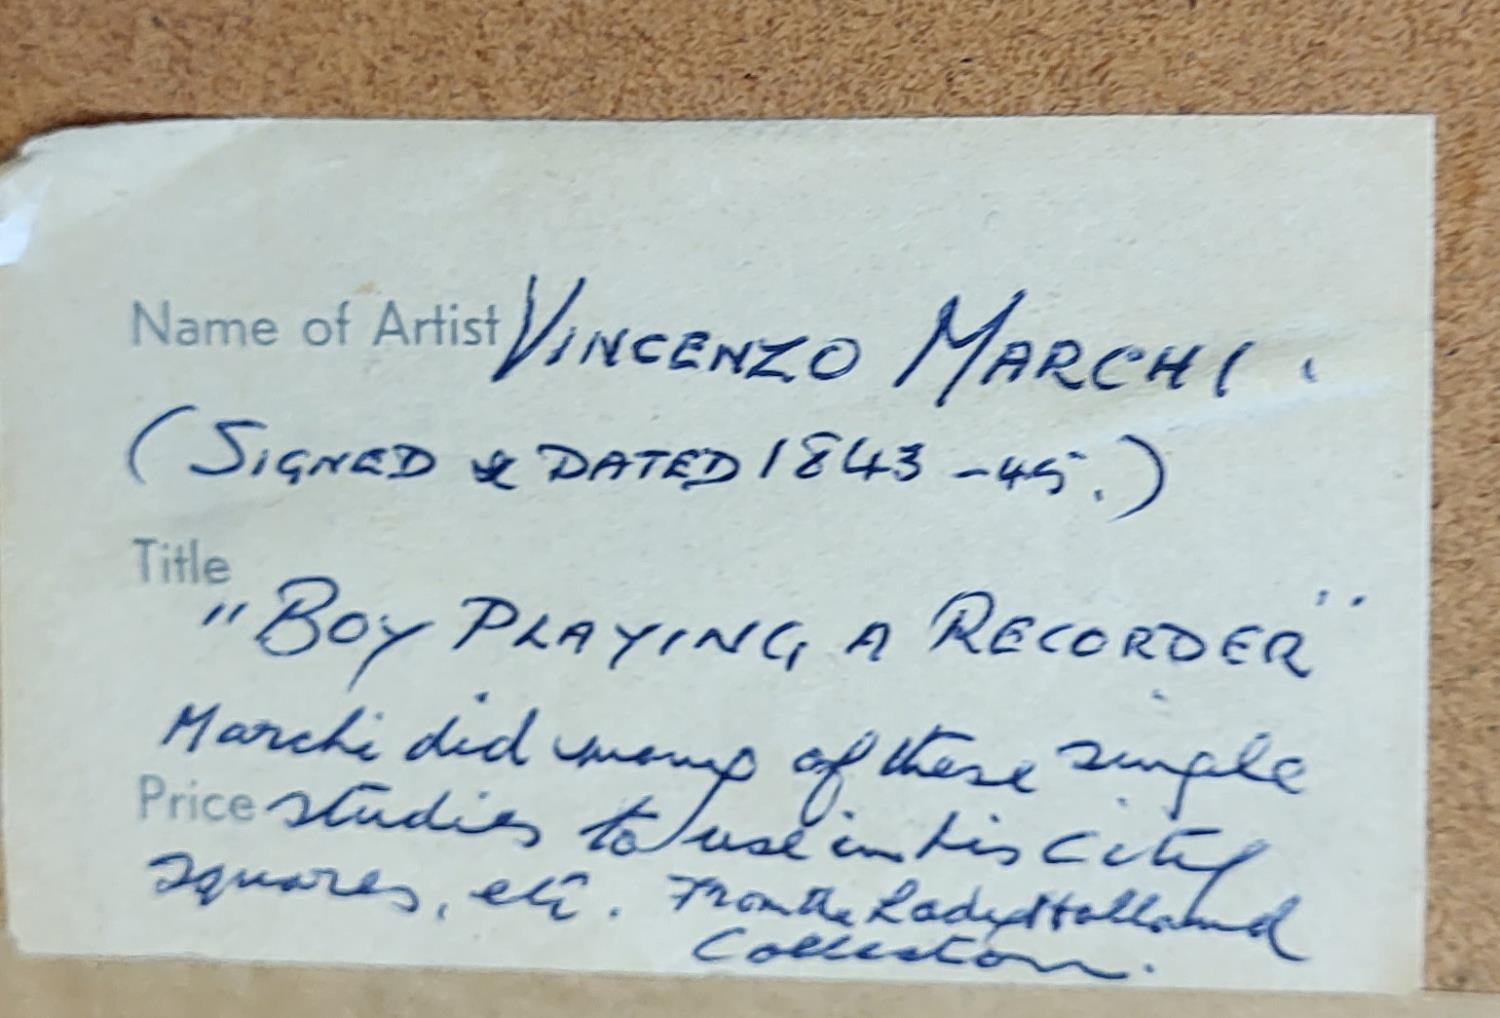 Name of Artist VINCENZO MARCHI.
(SIGNED & DATED 1843-45.)
Title
"BOY PLAYING A RECORDER"
Marchi did many of these single
Price studies to use in his city
squares, etc. From the Lady Holland
Collection.